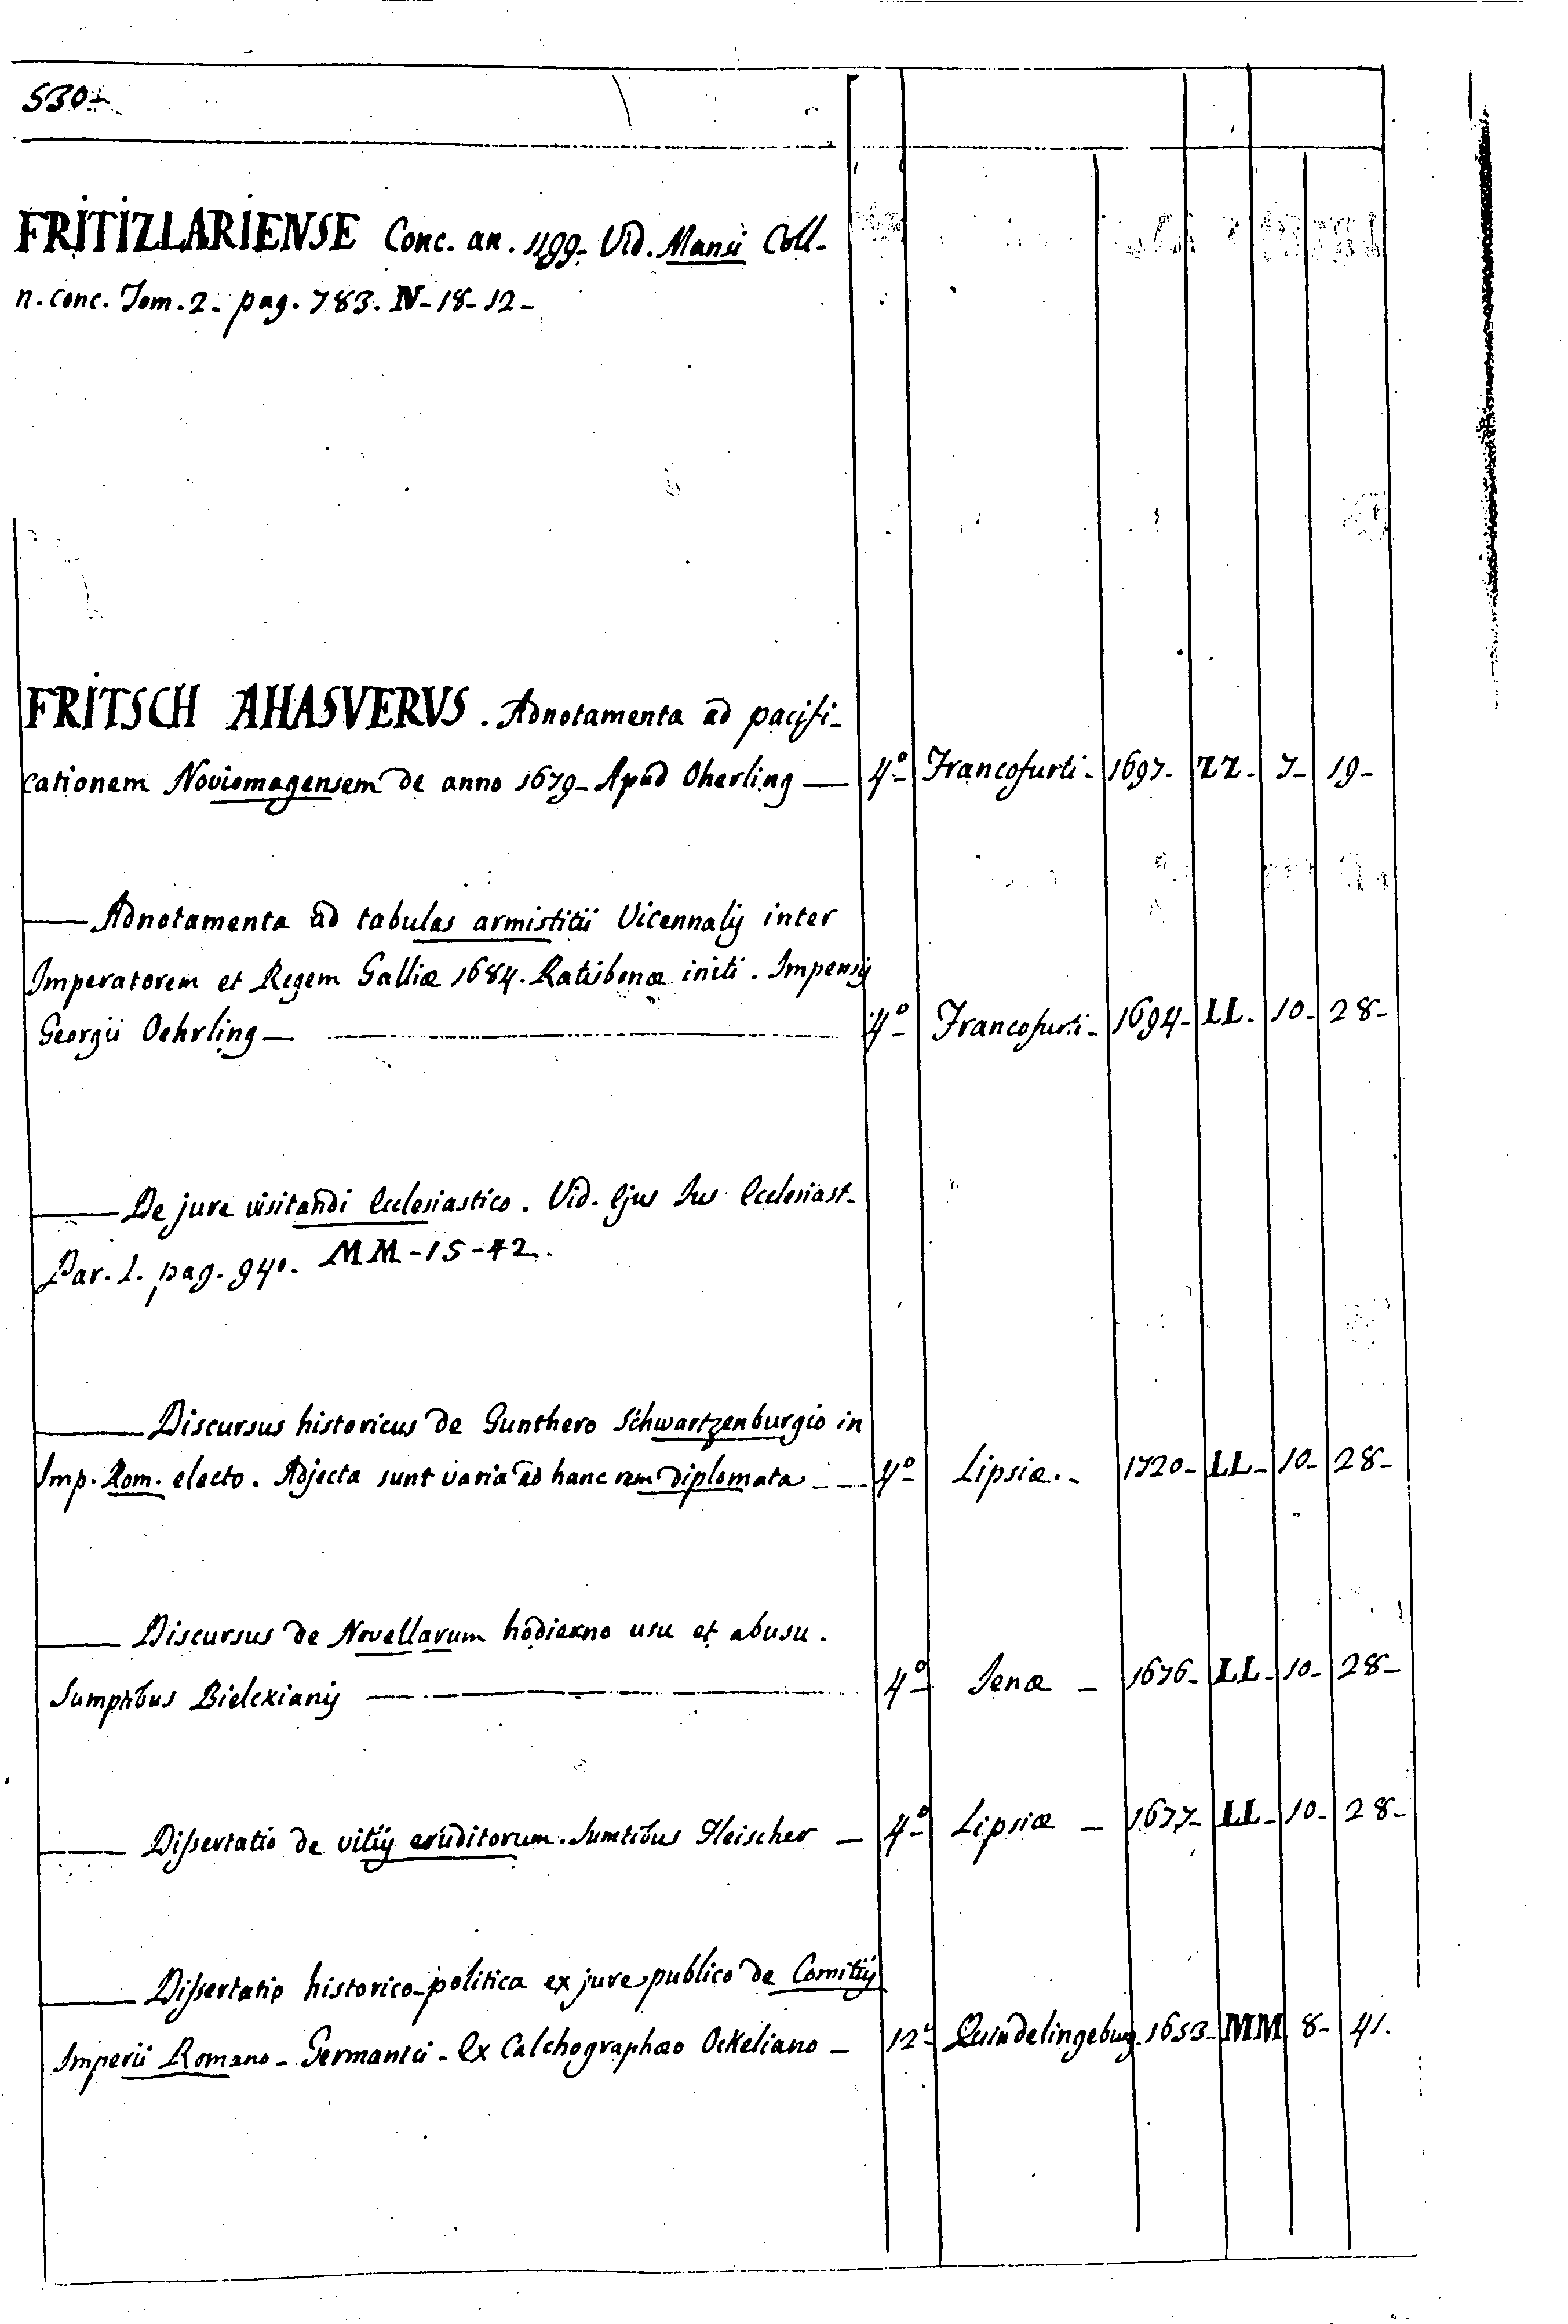 530-
FRITIZLARIENSE Conc. an. 1199- Vid. Mansi Coll-
n. conc. Tom. 2- pag. 783. N-18-12-
FRITSCH AHASVERVS. Adnotamenta ad pacifi-
cationem Noviomagensem de anno 1679- Apud Oherling — 4º- Francofurti- 1697- ZZ- 7- 19-
— Adnotamenta ad tabulas armistitii Vicennalij inter
Imperatorem et Regem Galliæ 1684. Ratisbonæ initi. Impensij
Georgii Oehrling — 4º- Francofurti- 1694- LL- 10- 28-
— De jure visitandi Ecclesiastico. Vid. Ejus Jus Ecclesiast-
Par. 1. pag. 940. MM-15-42.
— Discursus historicus de Gunthero Schwartzenburgio in
Imp. Rom. electo. Adjecta sunt varia ad hanc rem diplomata — 4º- Lipsiæ.- 1720- LL- 10- 28-
— Discursus de Novellarum hodierno usu et abusu.
Sumptibus Bielckianij — 4º- Jenæ - 1676- LL- 10- 28-
— Dissertatio de vitiij eruditorum. Sumtibus Fleischer — 4º- Lipsiæ - 1677- LL- 10- 28-
— Dissertatio historico-politica ex jure publico de Comitiij
Imperii Romano- Germanici- Ex Calchographæo Ockeliano - 12º- Quindelingeburg. 1653- MM 8- 41.